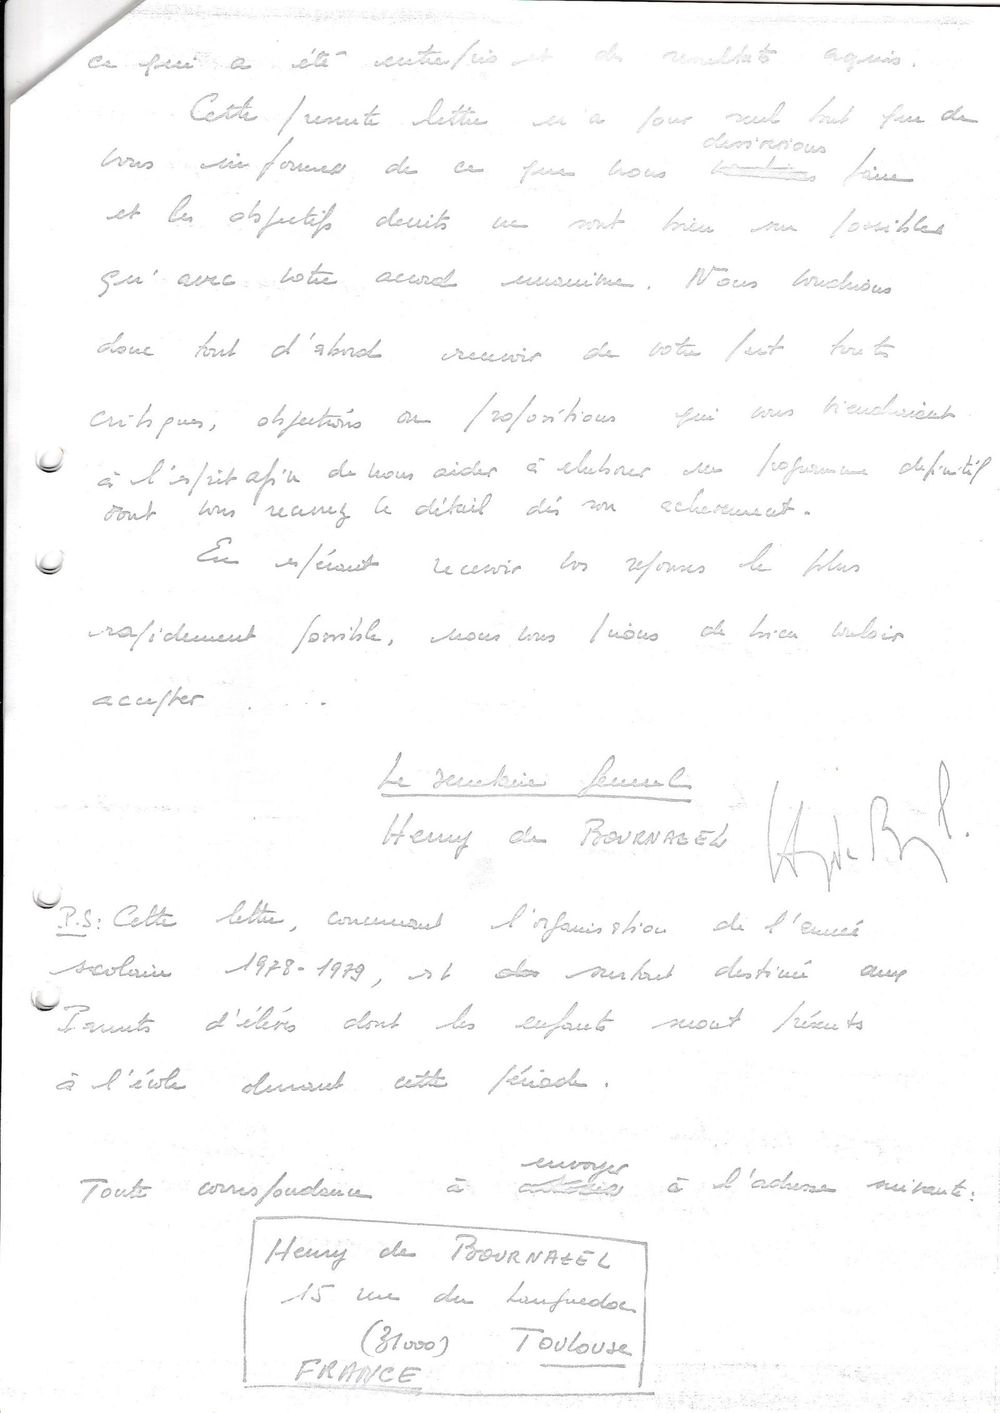 ce qui a été entrepris et des resultats aquis.
Cette presente lettre n'a pour seul but que de
desirerions
vous informer de ce que nous faire
et les objectifs decrits ne sont bien sur possibles
qu'avec votre accord unanime. Nous voudrions
donc tout d'abord recevoir de votre part toutes
critiques, objections ou propositions qui vous viendraient
à l'esprit afin de nous aider à elaborer un programme definitif
dont vous recevrez le détail dés son achevement.
En espérant recevoir vos reponses le plus
rapidement possible, nous vous prions de bien vouloir
accepter . . .
Le secretaire General
Henry de BOURNAZEL
P.S: Cette lettre, concernant l'organisation de l'année
scolaire 1978-1979, est surtout destinée aux
Parents d'élèves dont les enfants seront présents
à l'école durant cette période.
envoyer
Toute correspondance à à l'adresse suivante:
Henry de BOURNAZEL
15 rue du Languedoc
(31000) TOULOUSE
FRANCE